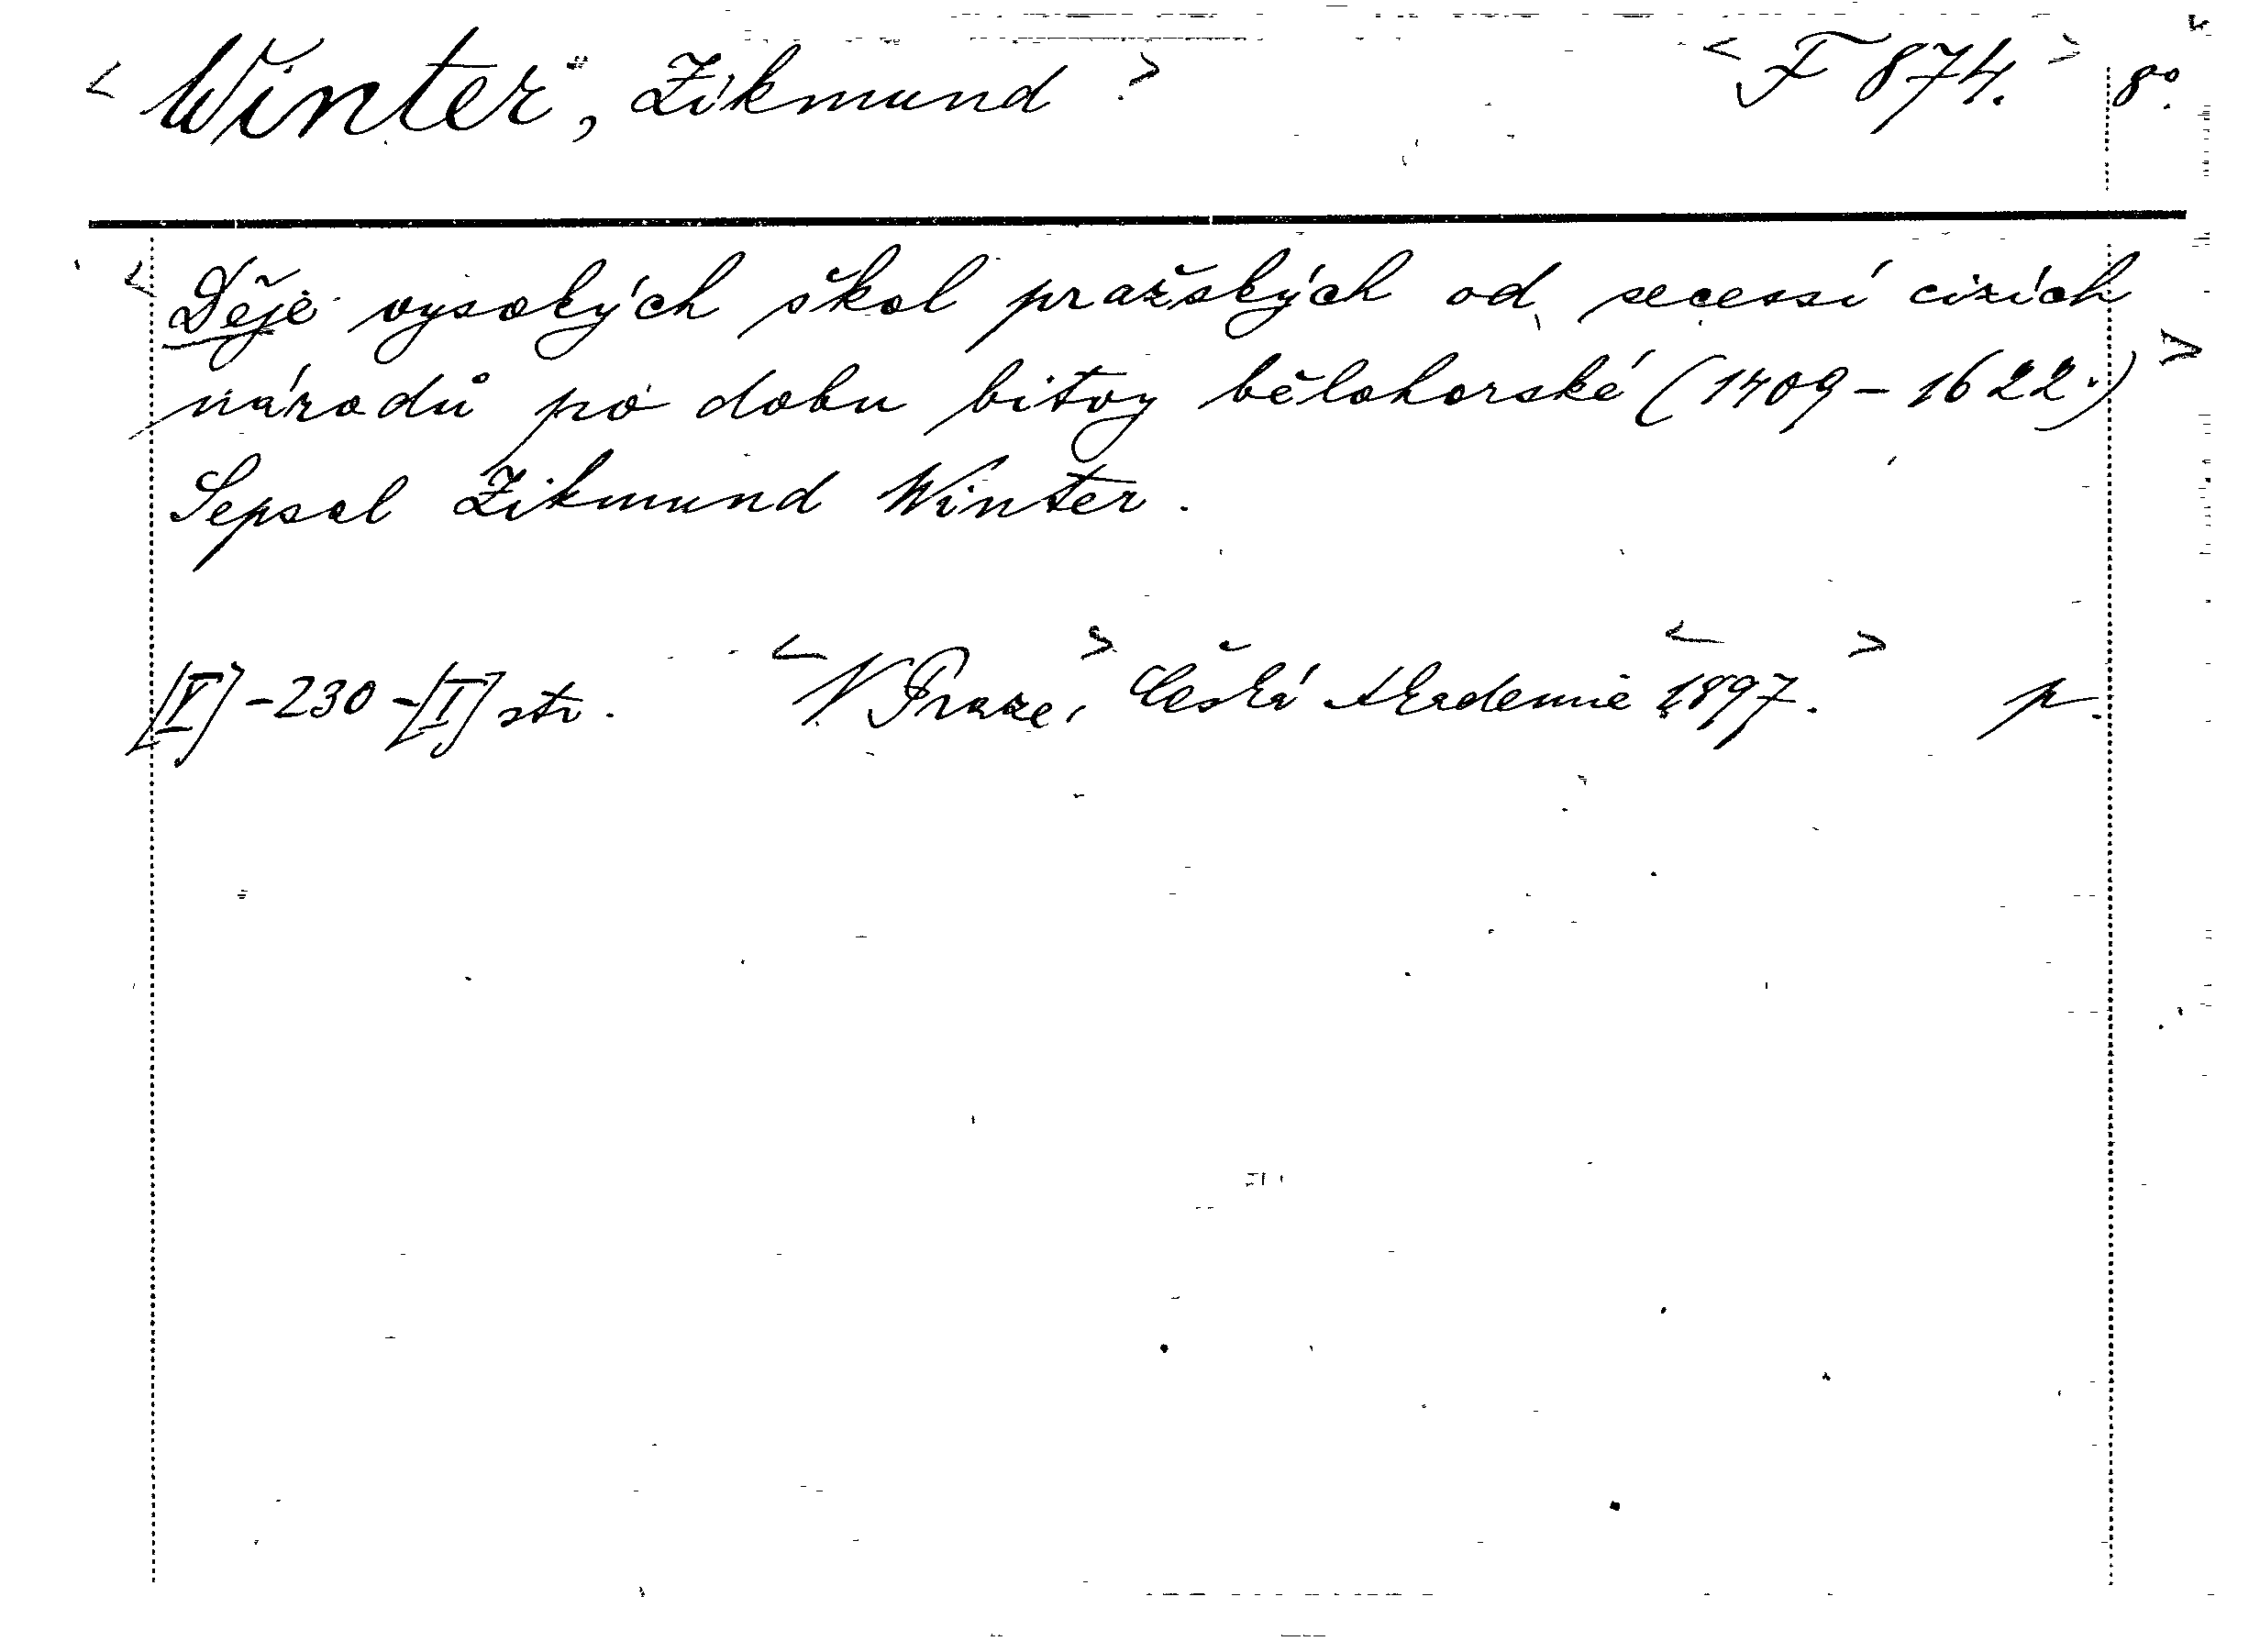 < Winter, Zikmund > < F 874. > 8°.
< Děje vysokých škol pražských od secessí cizích
národů po dobu bitvy bělohorské (1409-1622.) >
Sepsal Zikmund Winter.
[V]-230-[I] str. < V Praze, > Česká Akademie < 1897. > p.